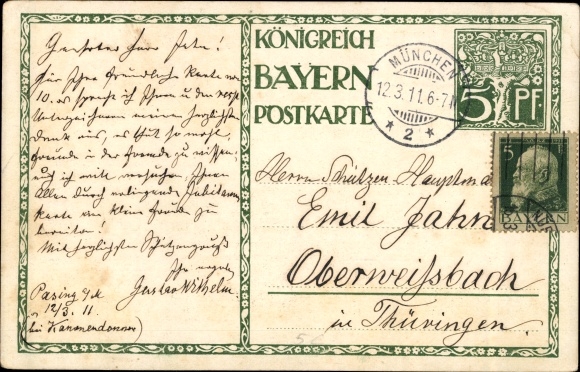 Geehrter Herr
Für Ihre freundliche Karte vom
10. ds spreche ich Ihnen u den resp.
Unterzeichnern meinen herzlichsten
Dank aus, es thut so wohl,
Freunde in der Fremde zu wissen,
auch ich will versuchen, Ihnen
Allen durch vorliegende Jubiläums
karte eine kleine Freude zu
bereiten!
Mit herzlichstem Schützengruß
Ihr
Gustav Wilhelm
Pasing
12/3. 11
bei Kanonendonner)
KÖNIGREICH
BAYERN
POSTKARTE
MÜNCHEN
12.3.11.6-7
* 2 *
5 PF.
5
BAYERN
Herrn Schützen Hauptmann
Emil Jahn
Oberweißbach
in Thüringen.